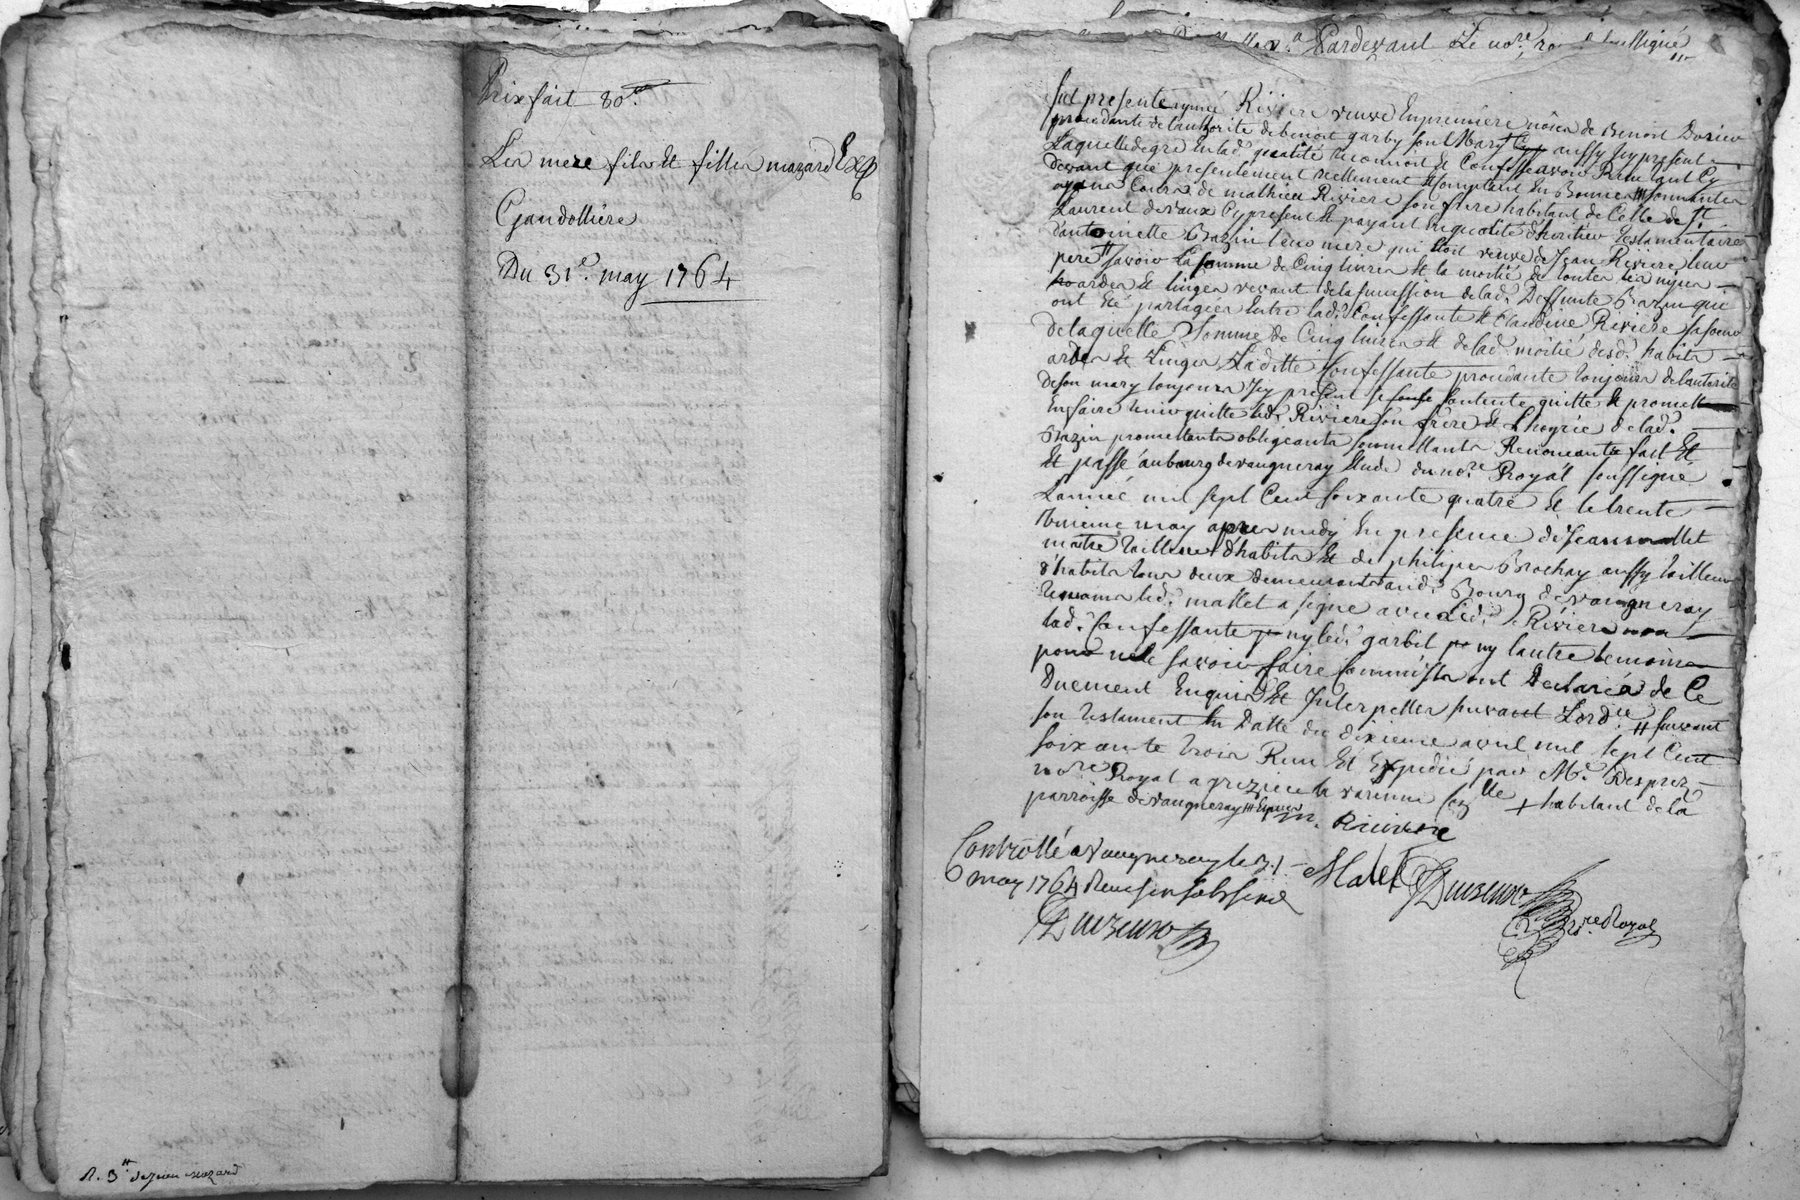 Prixfait 80.tt
Les mere fils et filles mazard Exp
Gandolliére
Du 31e. may 1764
R. 3.tt de Jean mazard
Pardevant Le nore. royal soussigné
fut presente Riviere veuve En premiere nôces de Benoit
procedante de l'authorité de benoit garby son Mary aussy Icy present
Laquelle de gré En lad. qualité reconnoit Et Confesse avoir Receu tant Cy
devant que presentement reellement Comptant En Bonnes # sonnantes
ayant Cours de mathieu Riviere son frere habitant de Celle de St.
Laurent devaux Cy present Et payant En qualité d'heritier testamentaire
d'antoinette Bazin leur mere qui Etoit veuve de Jean Riviere leur
pere # savoir La somme de Cinq livres Et la moitié de toutes les nipes
hardes Et linges venant de la succession de lad. Deffunte Bazin qui
ont Eté partagées Entre lad. Confessante Et Claudine Riviere sa soeur
de laquelle Somme de Cinq livres Et de lad. moitié desd. habits
ardes Et Linges Laditte Confessante procedante toujours de l'autorité
de son mary toujours Icy présent se Contente quitte Et promet
En faire tenir quitte led. Riviere son frère Et L'hoyrie de lad.
Bazin promettants obligeants soumettants Renonceants fait Et
Et passé au bourg de vaugneray Etude du nore Royal soussigné
L'année mil sept Cent soixante quatre Et le trente
unieme may apres midy En presence de Jean mallet
maitre tailleur d'habits Et de philipes Brochay aussy tailleur
d'habits tous deux demeurants aud. Bourg de vaugneray
temoins led. mallet a signé avec Led. Riviere non
lad. Confessante ny led. garbit ny l'autre temoins
pour ne le savoir faire Comm'ils ont Declarés de Ce
Duement Enquis Et Interpellés suivant L'ord.ce # suivant
son testament En Datte du dixieme avril mil sept Cent
soixante trois Receu Et Expedié par Me. Desprez
nore Royal a grezieu la varenne + habitant de la
parroisse de vaugneray
m. Riuiere
Controllé a Vaugneray le 31
may 1764 Receu six sols six d
Malet
Nre Royal